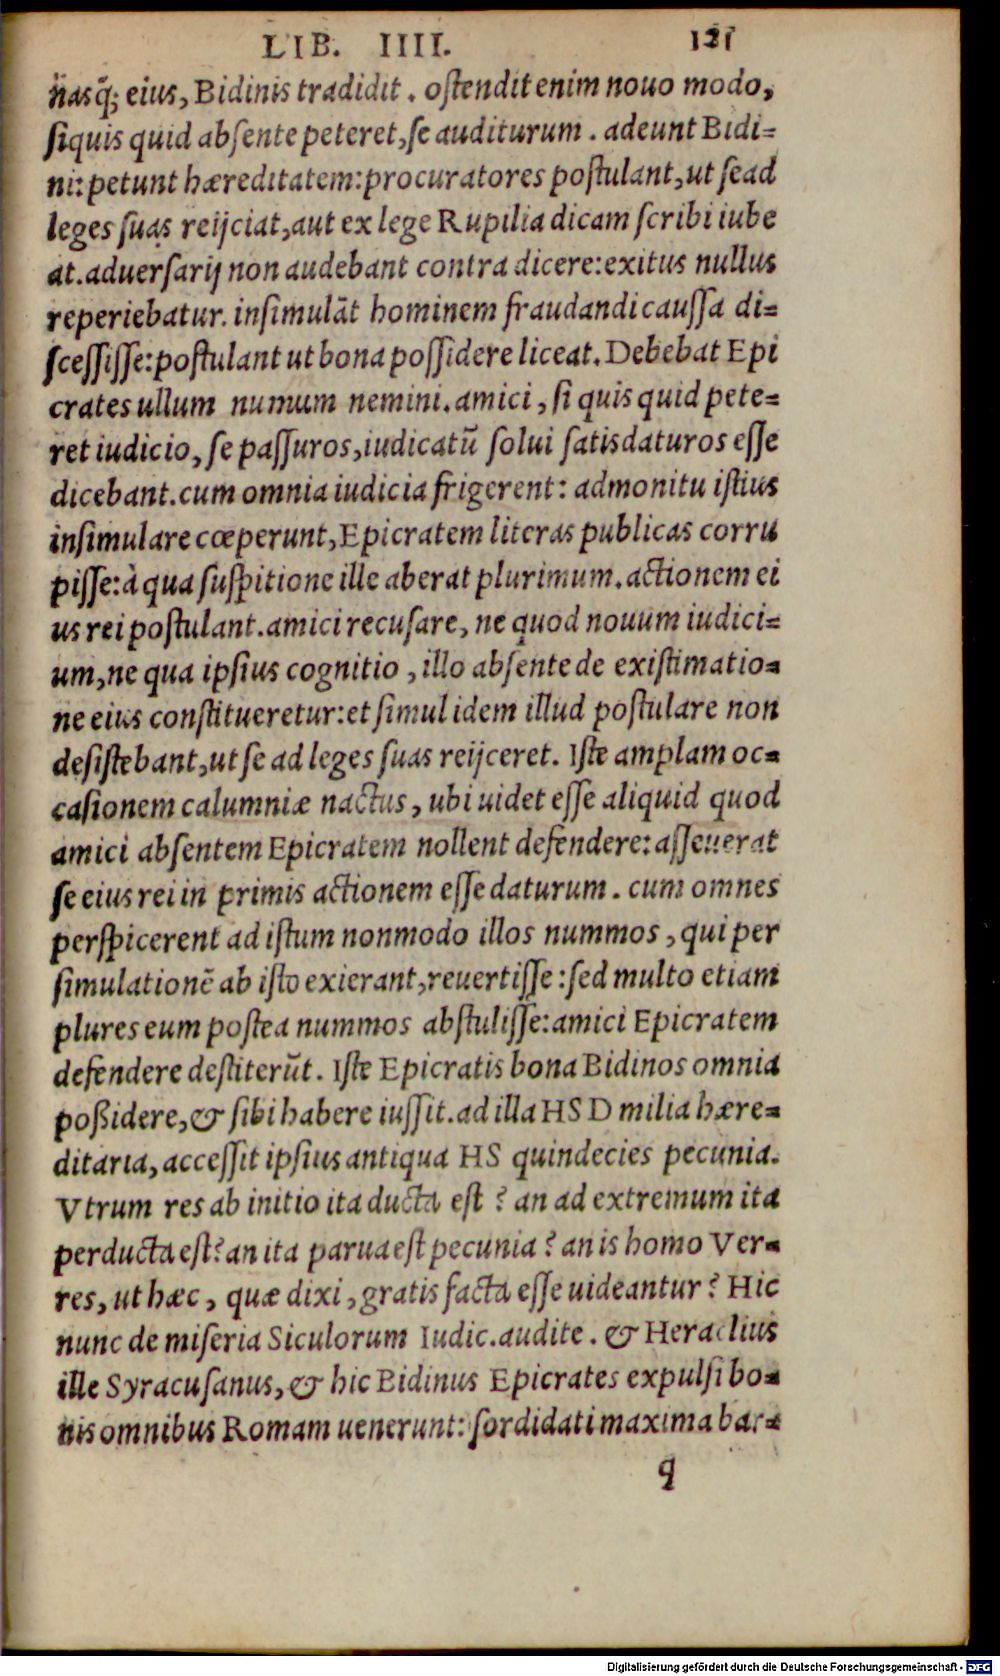 LIB. IIII. 121
nasq́; eius, Bidinis tradidit. ostendit enim nouo modo,
siquis quid absente peteret, se auditurum. adeunt Bidi-
ni: petunt hæreditatem: procuratores postulant, ut se ad
leges suas reijciat, aut ex lege Rupilia dicam scribi iube
at. aduersarij non audebant contra dicere: exitus nullus
reperiebatur. insimulāt hominem fraudandi caussa di-
scessisse: postulant ut bona possidere liceat. Debebat Epi
crates ullum numum nemini. amici, si quis quid pete-
ret iudicio, se passuros, iudicatū solui satisdaturos esse
dicebant. cum omnia iudicia frigerent: admonitu istius
insimulare cœperunt, Epicratem literas publicas corru
pisse: à qua suspitione ille aberat plurimum. actionem ei
us rei postulant. amici recusare, ne quod nouum iudici-
um, ne qua ipsius cognitio, illo absente de existimatio-
ne eius constitueretur: et simul idem illud postulare non
desistebant, ut se ad leges suas reijceret. Iste amplam oc-
casionem calumniæ nactus, ubi uidet esse aliquid quod
amici absentem Epicratem nollent defendere: asseuerat
se eius rei in primis actionem esse daturum. cum omnes
perspicerent ad istum nonmodo illos nummos, qui per
simulationē ab isto exierant, reuertisse: sed multo etiam
plures eum postea nummos abstulisse: amici Epicratem
defendere destiterūt. Iste Epicratis bona Bidinos omnia
poßidere, & sibi habere iussit. ad illa HS D milia hære-
ditaria, accessit ipsius antiqua HS quindecies pecunia.
Vtrum res ab initio ita ducta est? an ad extremum ita
perducta est? an ita parua est pecunia? an is homo Ver-
res, ut hæc, quæ dixi, gratis facta esse uideantur? Hic
nunc de miseria Siculorum Iudic. audite. & Heraclius
ille Syracusanus, & hic Bidinus Epicrates expulsi bo-
nis omnibus Romam uenerunt: sordidati maxima bar-
q
Digitalisierung gefördert durch die Deutsche Forschungsgemeinschaft - DFG